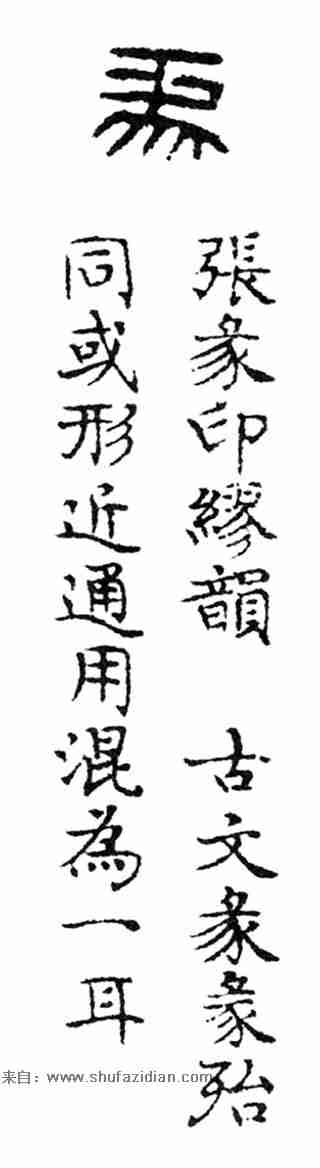 彖
張彖印繆韻　古文彖彖殆
同或形近通用混為一耳
来自：www.shufazidian.com